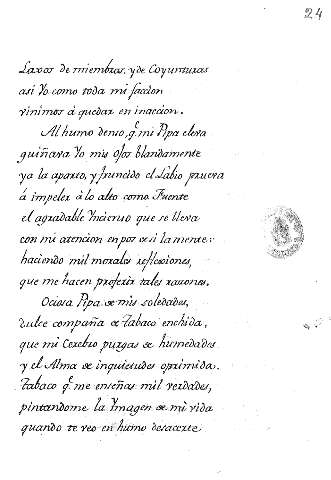 24
Laxos de miembros, y de Coyunturas
asi Yo como toda mi faccion
vinimos á quedar en inaccion.
Al humo denso, q.e mi Pipa eleva
guiñava Yo mis ojos blandamente
ya la aparto, y fruncido el Labio prueva
á impeler á lo alto como Fuente
el agradable Yncienso que se lleva
con mi atencion en pos de si la mente:
haciendo mil morales reflexiones,
que me hacen proferir tales razones.
Ociosa Pipa de mis soledades,
dulce compaña de Tabaco enchida,
que mi Cerebro purgas de humedades
y el Alma de inquietudes oprimida.
Tabaco q.e me enseñas mil verdades,
pintandome la Ymagen de mi vida
quando te veo en humo desacerte